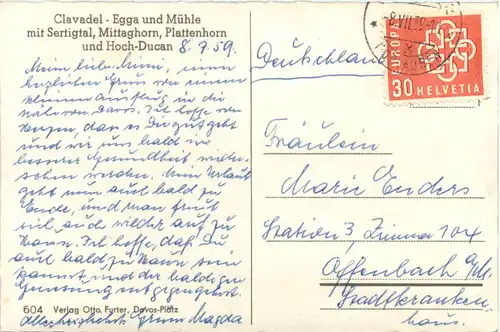 Clavadel - Egga und Mühle
mit Sertigtal, Mittaghorn, Plattenhorn
und Hoch-Ducan
8.7.59.
Mein liebe Mimi, einen
herzlichen Gruss von einem
kleinen Ausflug in die
Nähe von Davos. Ich hoffe von
Herzen, dass es Dir gut geht
und wir uns bald bei
besserer Gesundheit wieder-
sehen werden. Mein Urlaub
geht nun auch bald zu
Ende, und man freut
sich, auch wieder auf zu
Hause. Ich hoffe, daß Du
auch bald zu Hause sein
kannst und der baldigen
Genesung entgegengehst.
Allerherzlichst Grüsse Magda
604 Verlag Otto Furter, Davos-Platz
Deutschland
EUROPA
30 HELVETIA
Fräulein
Marie Enders
Station 3, Zimmer 104
Offenbach
Stadtkranken-
haus.